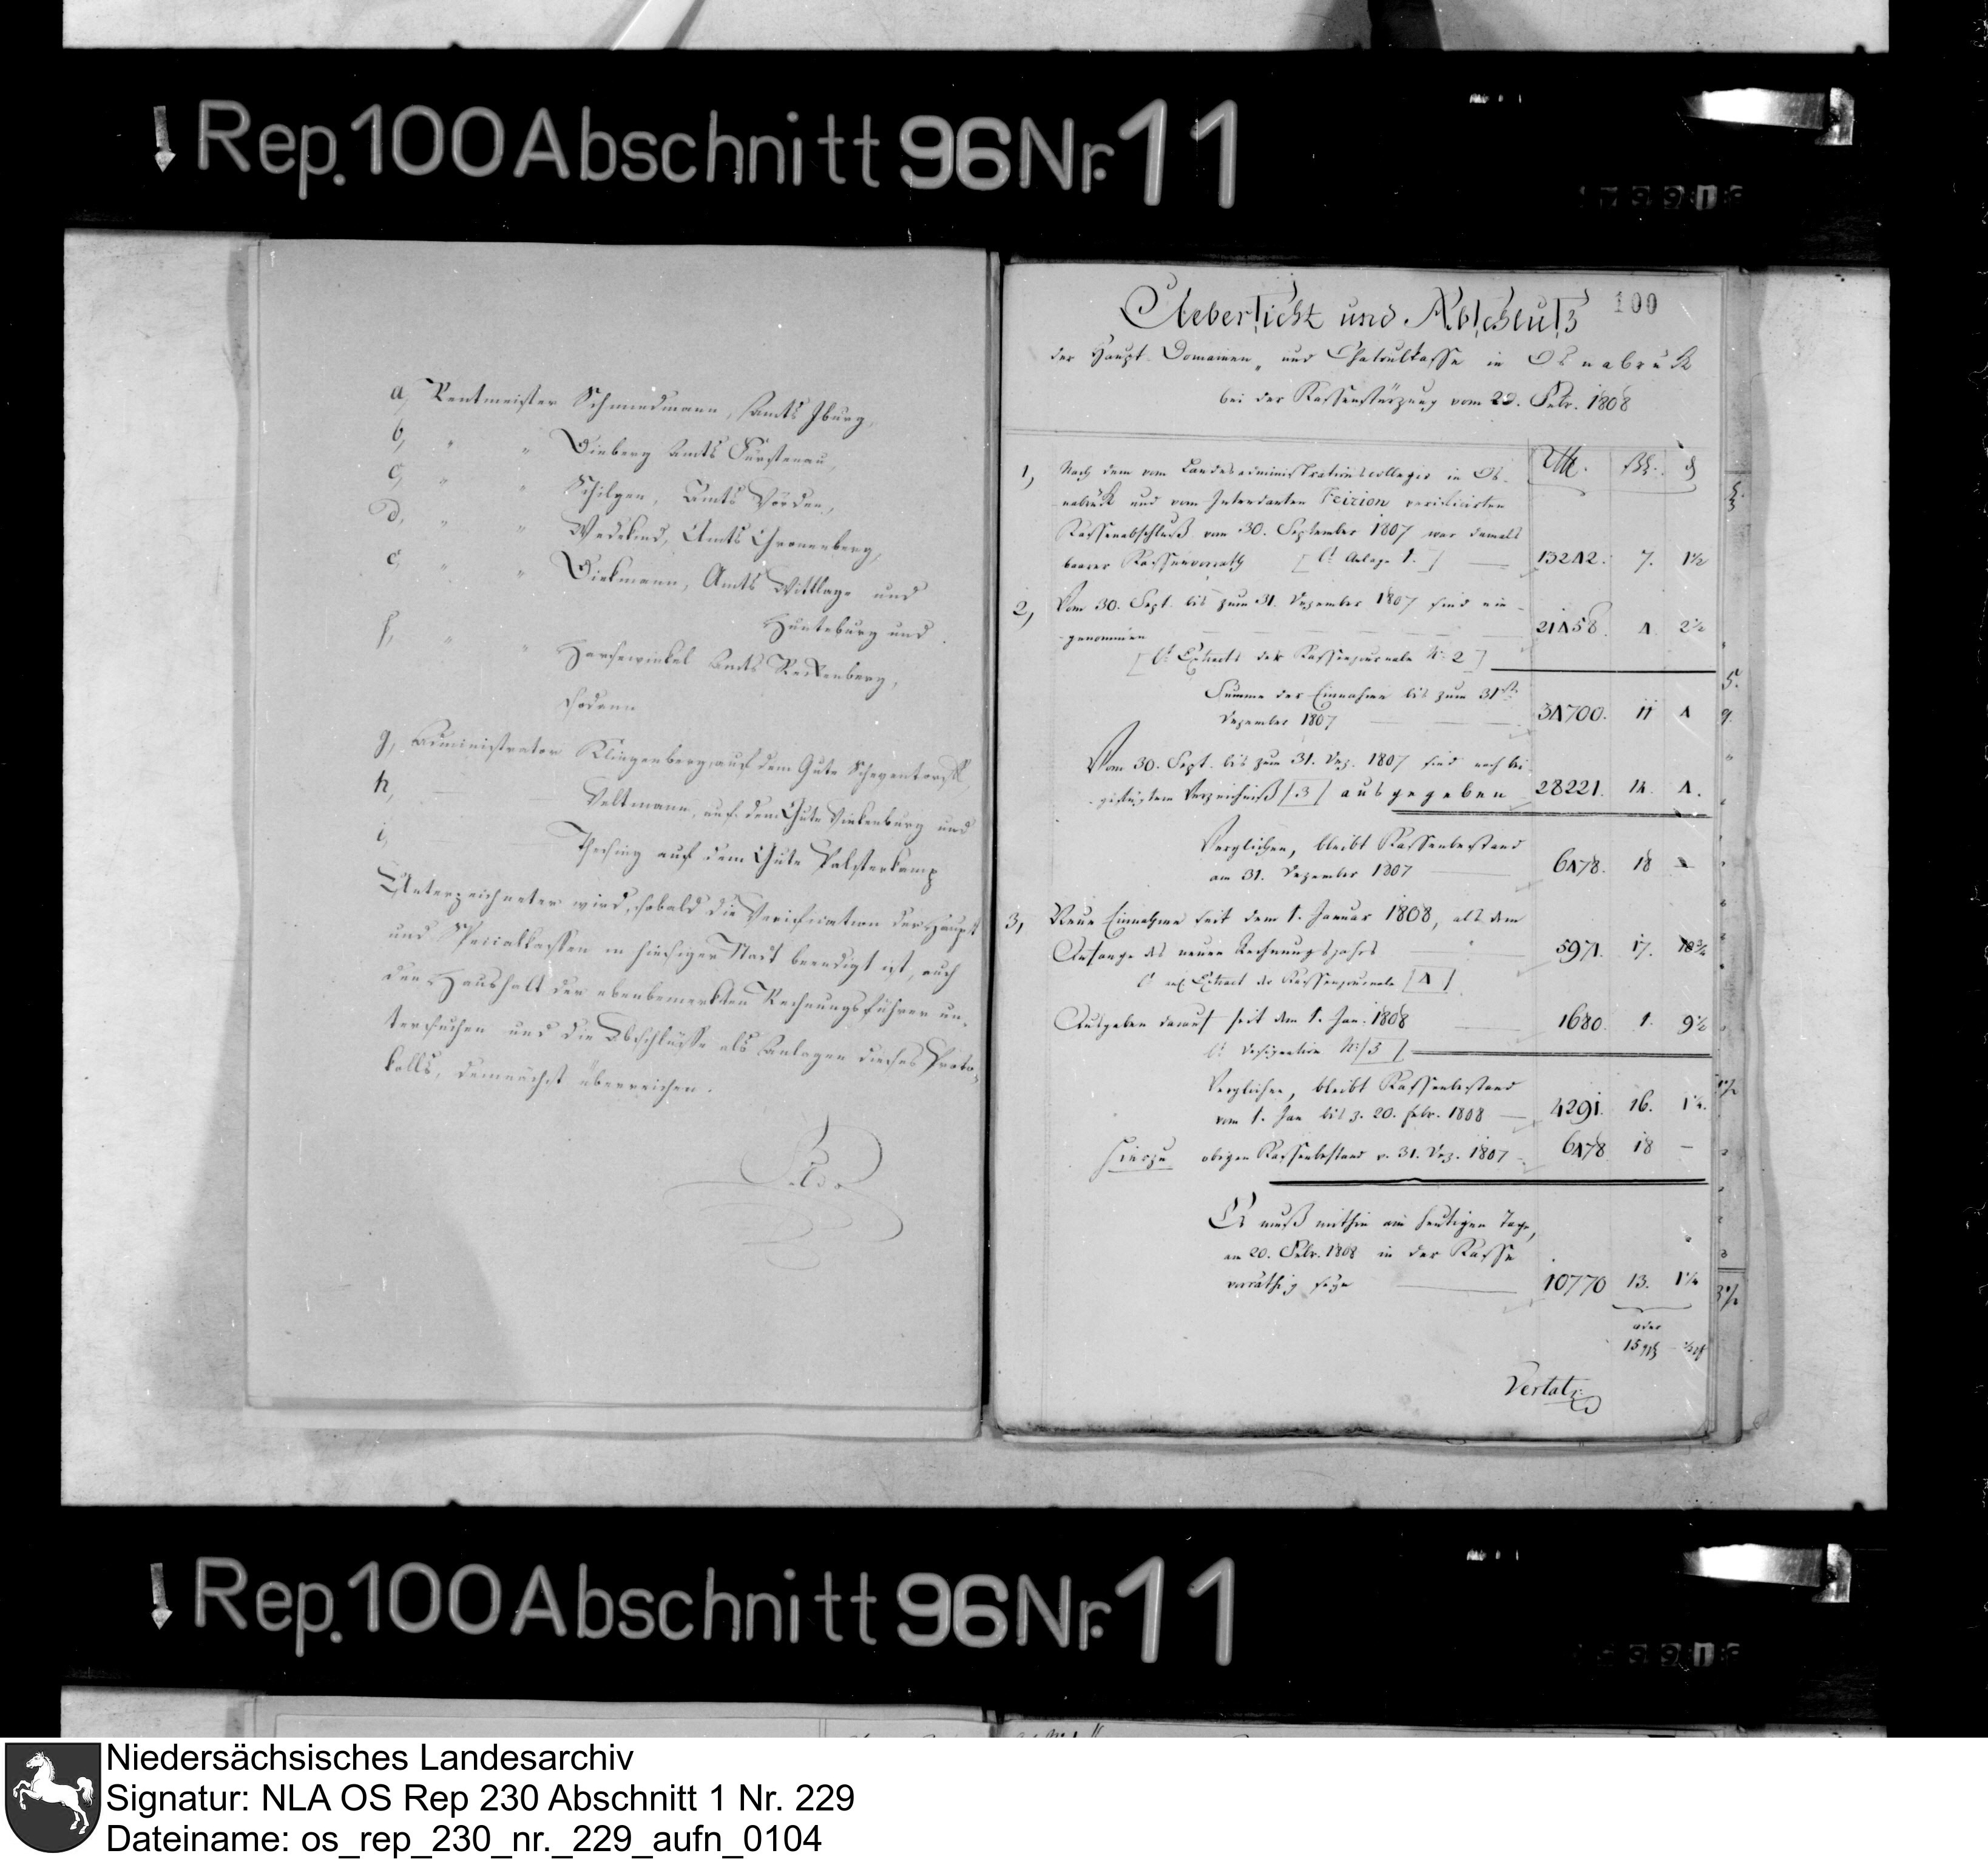 Rep. 100 Abschnitt 96 Nr. 11
a, Rentmeister Schmedmann, Amts Iburg,
b, " " Dinberg Amts Fürstenau,
c, " " Schilgen, Amts Vörden,
d, " " Wedekind, Amts Gronenberg,
e, " " Diekmann, Amts Wittlage und
Hunteburg und
f, " " Harsewinkel Amts Reckenberg,
sodann
g, Administrator Klingenberg, auf dem Gute Schepentorf,
h, — — Veltmann, auf dem Gute Vinkenburg und
i, Thesing auf dem Gute Palsterkamp
Unterzeichneter wird, sobald die Verification der Haupt
und Specialkassen in hiesiger Stadt beendigt ist, auch
den Haushalt der ebenbemerkten Rechnungsführer un-
tersuchen und die Abschlüsse als Anlagen dieses Proto-
kolls, demnächst überreichen.
100
Uebersicht und Abschluß
der Haupt-Domainen- und Chatoulkasse in Osnabrück
bei der Kassenstürzung vom 20. Febr. 1808
1, Nach dem vom Landesadministrationscollegio in Os-
nabrück und vom Intendanten verificirten
Kassenabschluß vom 30. September 1807 war damals
baarer Kassenvorrath [Anlage 1.] — 13242. 7. 1½
2, Vom 30. Sept. bis zum 31. Dezember 1807 sind ein-
genommen 21458. 4 2½
[Extracts der Kassenjournale No 2]
Summe der Einnahme bis zum 31st
Dezember 1807 — 34700. 11 4
Vom 30. Sept. bis zum 31. Dez. 1807 sind nach bei-
gefügtem Verzeichniß [3] ausgegeben 28221. 14. 4.
Verglichen, bleibt Kassenbestand
am 31. Dezember 1807 — 6478. 18 –
3, Neue Einnahme seit dem 1. Januar 1808, als dem
Anfange des neuen Rechnungsjahrs 5971. 17. 10¾
Extract der Kassenjournale [4]
Ausgaben darauf seit dem 1. Jan. 1808 — 1680. 1. 9½
Designation No [5]
Verglichen, bleibt Kassenbestand
vom 1. Jan bis z. 20. Febr. 1808 — 4291. 16. 1¼.
Hiezu obigen Kassenbestand v. 31. Dez. 1807 - 6478 18 –
Es muß mithin am heutigen Tage,
am 20. Febr. 1808 in der Kasse
vorräthig seyn — 10770 13. 1¼
oder
Vertatr
Rep. 100 Abschnitt 96 Nr. 11
Niedersächsisches Landesarchiv
Signatur: NLA OS Rep 230 Abschnitt 1 Nr. 229
Dateiname: os_rep_230_nr._229_aufn_0104